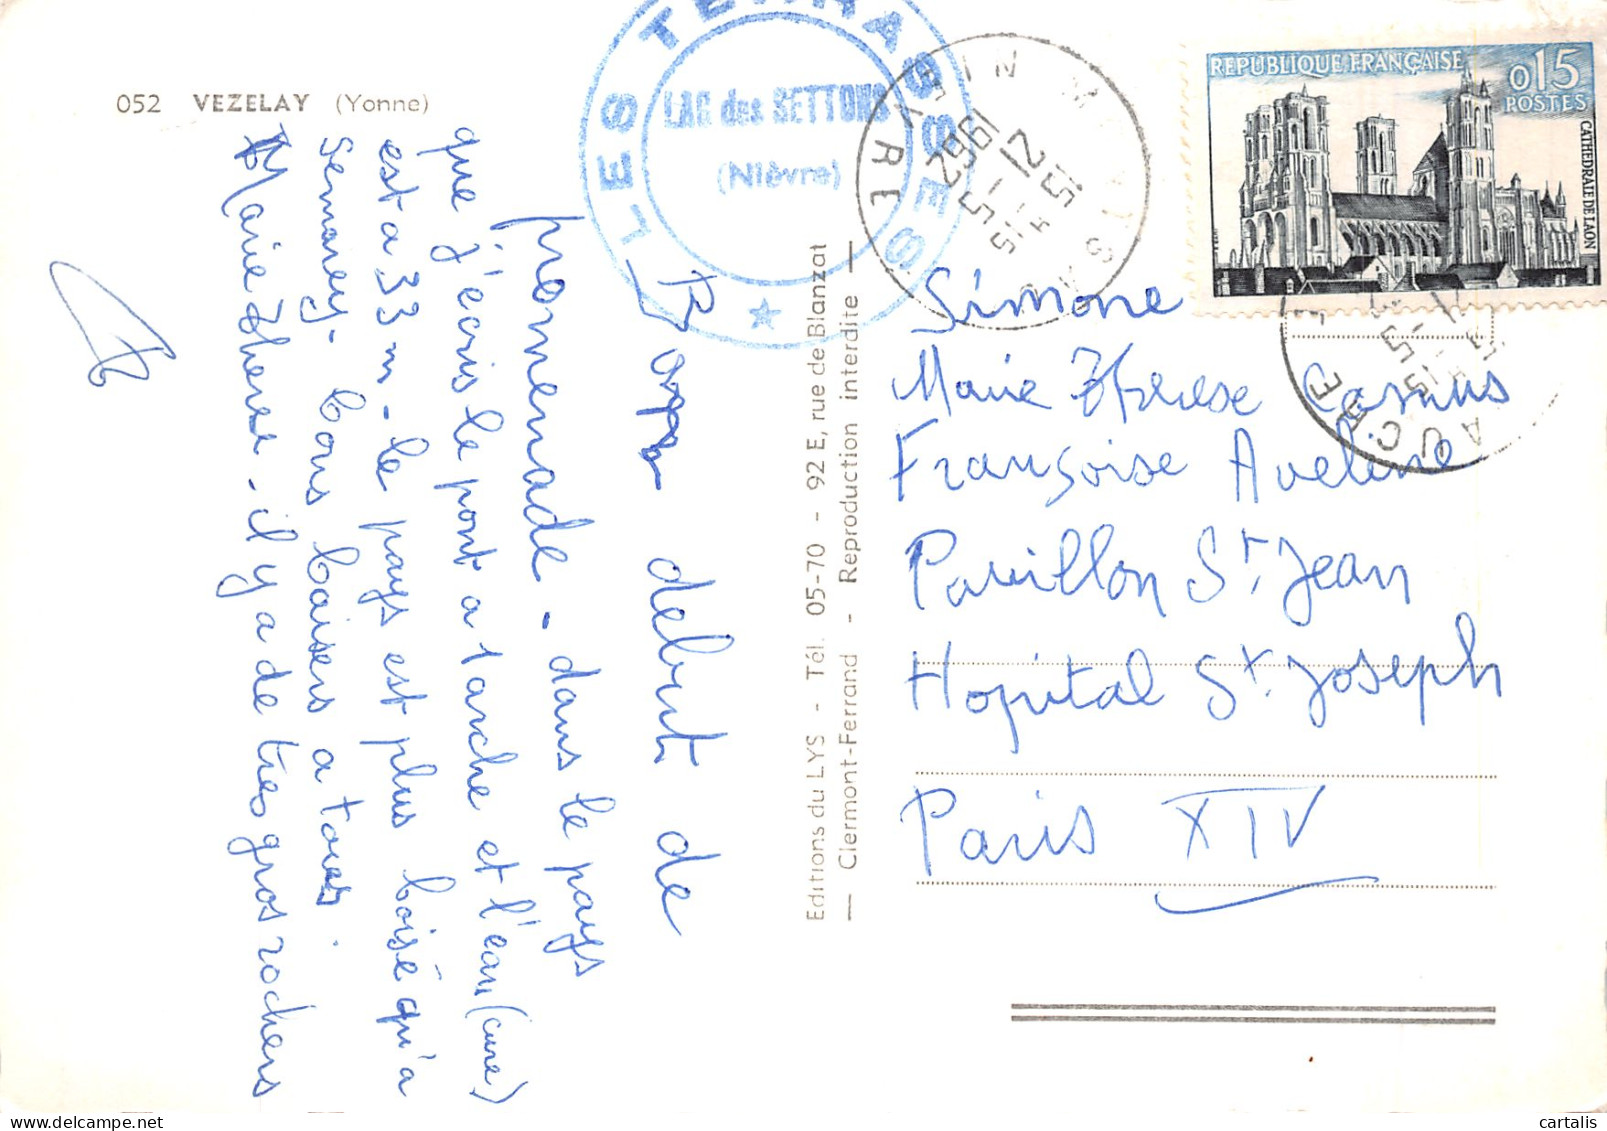 052 VEZELAY (Yonne)
LES TERRASSES
LAC des SETTONS
(Nièvre)
REPUBLIQUE FRANÇAISE
0,15
POSTES
CATHEDRALE DE LAON
NIÈVRE
Bon debut de
promenade - dans le pays
que j'ecris le pont a 1 arche et l'eau (cure)
est a 33 m - le pays est plus boisé qu'a
Semarey - bons baisers a tous.
Marie Therese - il y a de tres gros rochers
Editions du LYS - Tél. 05-70 - 92 E, rue de Blanzat
— Clermont-Ferrand - Reproduction interdite —
Simone
Marie Therese
Françoise Aveline
Pavillon St Jean
Hopital St Joseph
Paris XIV
cartalis
delcampe.net